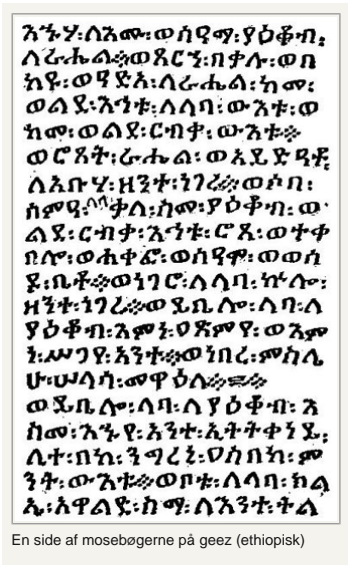 እኁሃ፡ለእሙ፡ወሰዐማ፡ያዕቆብ፡
ለራሔል፨ወጸርኀ፡በቃሉ፡ወበ
ከየ፡ወዓይድአ፡ለራሔል፡ከመ፡
ወልደ፡እኅቱ፡ለላባ፡ውእቱ፡ወ
ከመ፡ወልደ፡ርብቃ፡ውእቱ፨
ወሮጸት፡ራሔል፡ወአይድዓቶ
ለአቡሃ፡ዘንተ፡ነገረ፨ወሶበ፡
ሰምዐ፡ላባ፡ቃለ፡ስመ፡ያዕቆብ፡ወ
ልደ፡ርብቃ፡እኅቱ፡ሮጸ፡ወተቀ
በሎ፡ወሐቀፎ፡ወሰዐሞ፡ወወሰ
ዶ፡ቤቶ፨ወነገሮ፡ለላባ፡ኵሎ፡
ዘንተ፡ነገረ፨ወይቤሎ፡ላባ፡ለ
ያዕቆብ፡እምነ፡ዐጽምየ፡ወእም
ነ፡ሥጋየ፡አንተ፨ወነበረ፡ምስሌ
ሁ፡ሠላሳ፡መዋዕለ፨
ወይቤሎ፡ላባ፡ለያዕቆብ፡እ
ስመ፡እኁየ፡አንተ፡ኢትትቀነይ፡
ሊተ፡በከ፡ንግረኒ፡ዐስበከ፡ም
ንት፡ውእቱ፨ወቦቱ፡ለላባ፡ክል
ኤ፡አዋልድ፡ስማ፡ለእንተ፡ተል
En side af mosebøgerne på geez (ethiopisk)